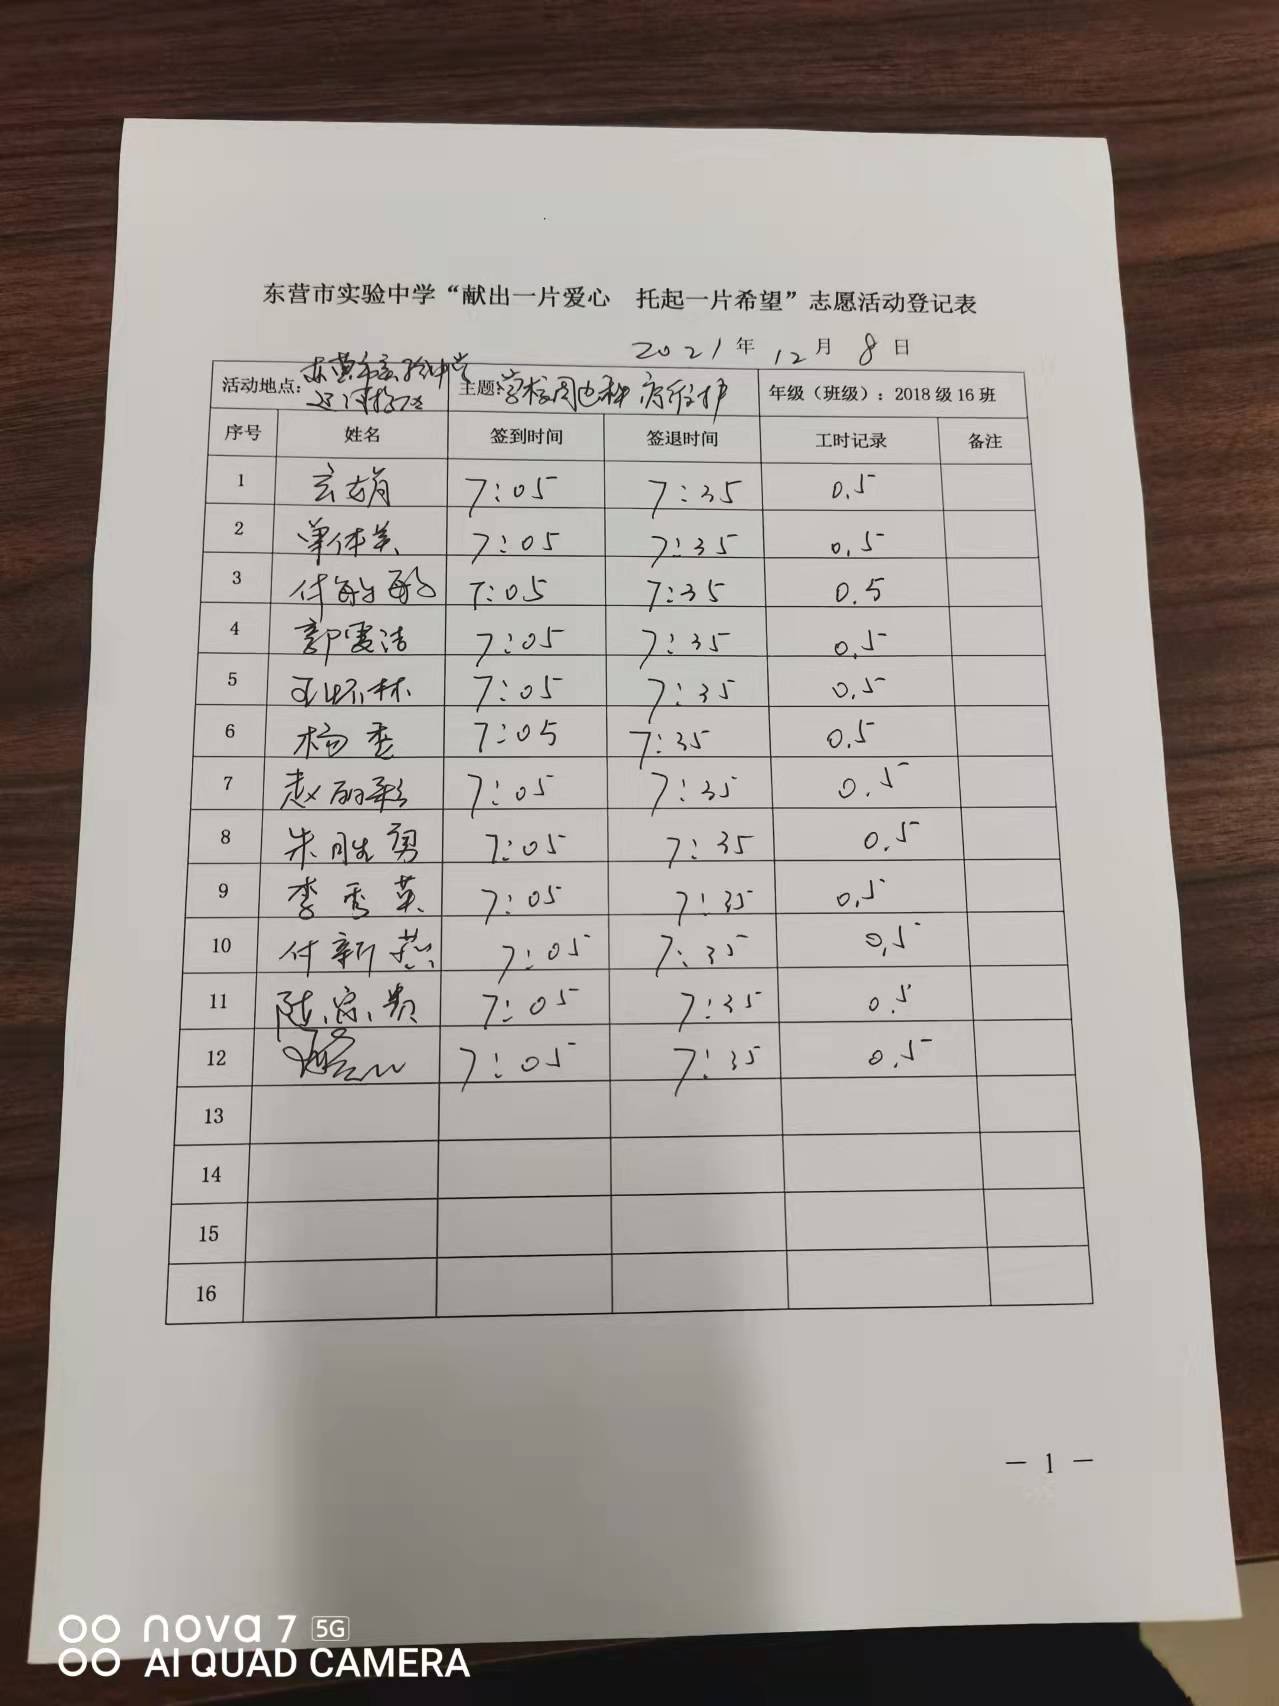 东营市实验中学“献出一片爱心 托起一片希望”志愿活动登记表
2021年12月8日
活动地点：东营市实验中学 主题：学校周边秩序维护 年级（班级）：2018级16班
序号 姓名 签到时间 签退时间 工时记录 备注
1 玄娟 7:05 7:35 0.5
2 单体美 7:05 7:35 0.5
3 付敏敏 7:05 7:35 0.5
4 郭雪洁 7:05 7:35 0.5
5 王怀林 7:05 7:35 0.5
6 杨秀 7:05 7:35 0.5
7 赵丽彩 7:05 7:35 0.5
8 朱胜勇 7:05 7:35 0.5
9 李秀英 7:05 7:35 0.5
10 付新燕 7:05 7:35 0.5
11 陈家贵 7:05 7:35 0.5
12 7:05 7:35 0.5
13
14
15
16
— 1 —
nova 7 5G
AI QUAD CAMERA